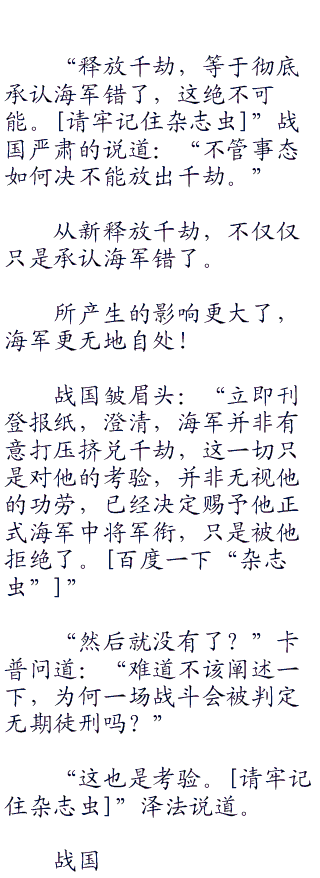 “释放千劫，等于彻底
承认海军错了，这绝不可
能。[请牢记住杂志虫]”战
国严肃的说道：“不管事态
如何决不能放出千劫。”
从新释放千劫，不仅仅
只是承认海军错了。
所产生的影响更大了，
海军更无地自处！
战国皱眉头：“立即刊
登报纸，澄清，海军并非有
意打压挤兑千劫，这一切只
是对他的考验，并非无视他
的功劳，已经决定赐予他正
式海军中将军衔，只是被他
拒绝了。[百度一下“杂志
虫”]”
“然后就没有了？”卡
普问道：“难道不该阐述一
下，为何一场战斗会被判定
无期徒刑吗？”
“这也是考验。[请牢记
住杂志虫]”泽法说道。
战国